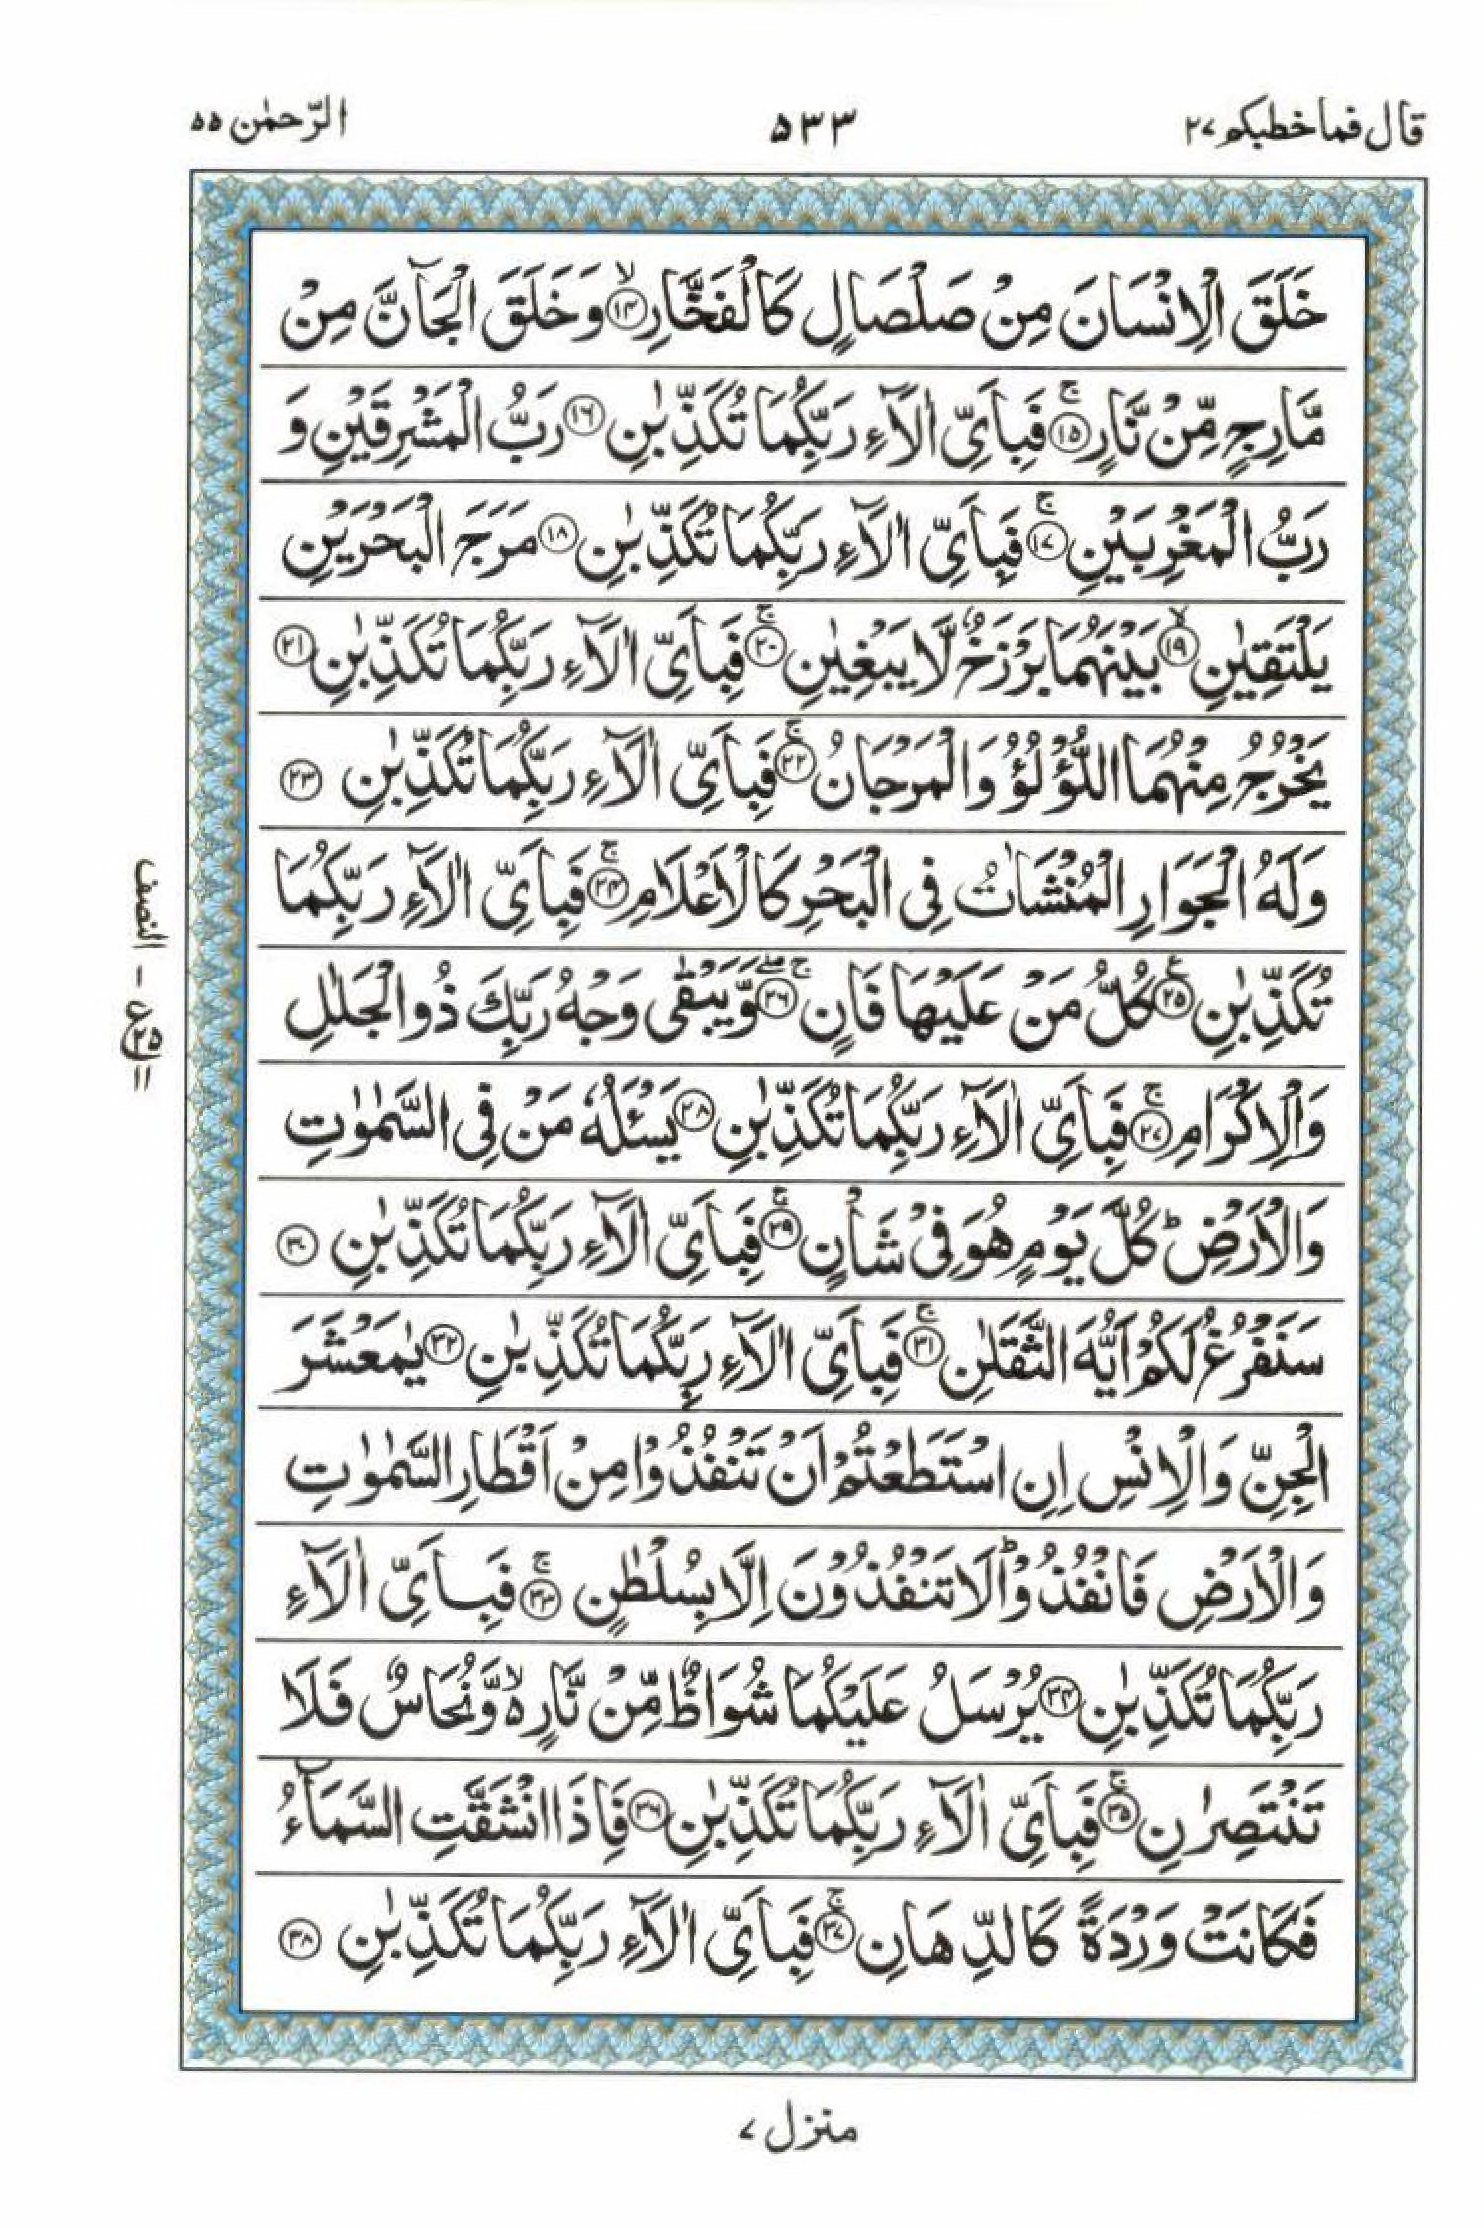 قال فما خطبكم ٢٧ ٥٣٣ الرّحمٰن ٥٥
خَلَقَ الْاِنْسَانَ مِنْ صَلْصَالٍ كَالْفَخَّارِۙ ۝١٤ وَخَلَقَ الْجَآنَّ مِنْ
مَّارِجٍ مِّنْ نَّارٍۚ ۝١٥ فَبِاَيِّ اٰلَآءِ رَبِّكُمَا تُكَذِّبٰنِ ۝١٦ رَبُّ الْمَشْرِقَيْنِ وَ
رَبُّ الْمَغْرِبَيْنِۚ ۝١٧ فَبِاَيِّ اٰلَآءِ رَبِّكُمَا تُكَذِّبٰنِ ۝١٨ مَرَجَ الْبَحْرَيْنِ
يَلْتَقِيٰنِۙ ۝١٩ بَيْنَهُمَا بَرْزَخٌ لَّا يَبْغِيٰنِۚ ۝٢٠ فَبِاَيِّ اٰلَآءِ رَبِّكُمَا تُكَذِّبٰنِ ۝٢١
يَخْرُجُ مِنْهُمَا اللُّؤْلُؤُ وَالْمَرْجَانُۚ ۝٢٢ فَبِاَيِّ اٰلَآءِ رَبِّكُمَا تُكَذِّبٰنِ ۝٢٣
وَلَهُ الْجَوَارِ الْمُنْشَاٰتُ فِي الْبَحْرِ كَالْاَعْلَامِۚ ۝٢٤ فَبِاَيِّ اٰلَآءِ رَبِّكُمَا
تُكَذِّبٰنِ ۝٢٥ؒ كُلُّ مَنْ عَلَيْهَا فَانٍۚۖ ۝٢٦ وَّيَبْقٰى وَجْهُ رَبِّكَ ذُو الْجَلٰلِ
وَالْاِكْرَامِۚ ۝٢٧ فَبِاَيِّ اٰلَآءِ رَبِّكُمَا تُكَذِّبٰنِ ۝٢٨ يَسْـَٔلُهٗ مَنْ فِي السَّمٰوٰتِ
وَالْاَرْضِؕ كُلَّ يَوْمٍ هُوَ فِيْ شَاْنٍۚ ۝٢٩ فَبِاَيِّ اٰلَآءِ رَبِّكُمَا تُكَذِّبٰنِ ۝٣٠
سَنَفْرُغُ لَكُمْ اَيُّهَ الثَّقَلٰنِۚ ۝٣١ فَبِاَيِّ اٰلَآءِ رَبِّكُمَا تُكَذِّبٰنِ ۝٣٢ يٰمَعْشَرَ
الْجِنِّ وَالْاِنْسِ اِنِ اسْتَطَعْتُمْ اَنْ تَنْفُذُوْا مِنْ اَقْطَارِ السَّمٰوٰتِ
وَالْاَرْضِ فَانْفُذُوْاؕ لَا تَنْفُذُوْنَ اِلَّا بِسُلْطٰنٍۚ ۝٣٣ فَبِاَيِّ اٰلَآءِ
رَبِّكُمَا تُكَذِّبٰنِ ۝٣٤ يُرْسَلُ عَلَيْكُمَا شُوَاظٌ مِّنْ نَّارٍ۬ۙ وَّنُحَاسٌ فَلَا
تَنْتَصِرٰنِۚ ۝٣٥ فَبِاَيِّ اٰلَآءِ رَبِّكُمَا تُكَذِّبٰنِ ۝٣٦ فَاِذَا انْشَقَّتِ السَّمَآءُ
فَكَانَتْ وَرْدَةً كَالدِّهَانِۚ ۝٣٧ فَبِاَيِّ اٰلَآءِ رَبِّكُمَا تُكَذِّبٰنِ ۝٣٨
النصف - ع ٢٥ ١١
منزل ٧